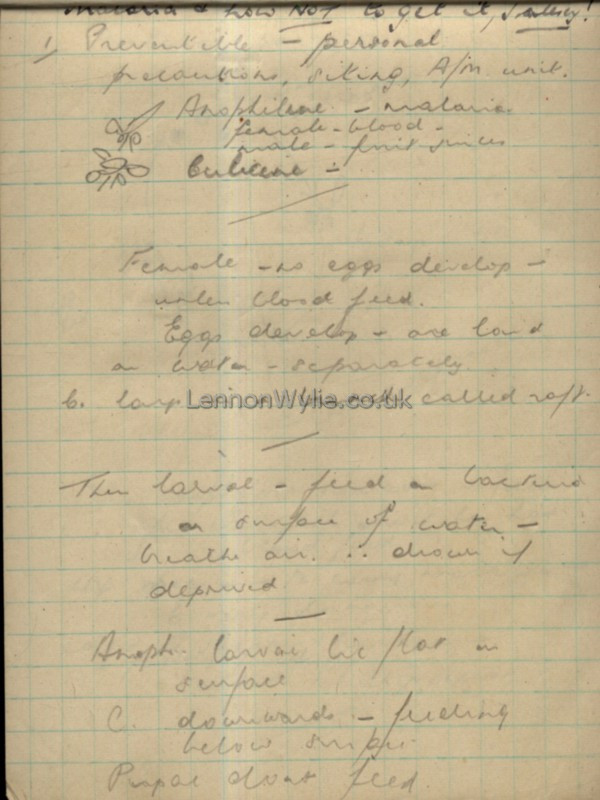 Malaria & how NOT to get it,
1, Preventible - personal
precautions, siting, A/m unit.
Anopheline - malaria
female - blood -
male - fruit juices
Culicine -
Female - no eggs develop -
unless blood feed.
Eggs develop - are laid
on water - separately
C. called raft.
LennonWylie.co.uk
Then larvae - feed on bacteria
on surface of water -
breathe air. ∴ drown if
deprived
Anoph. larvae lie flat on
surface
C. downwards - feeding
below surface.
Pupae dont feed.